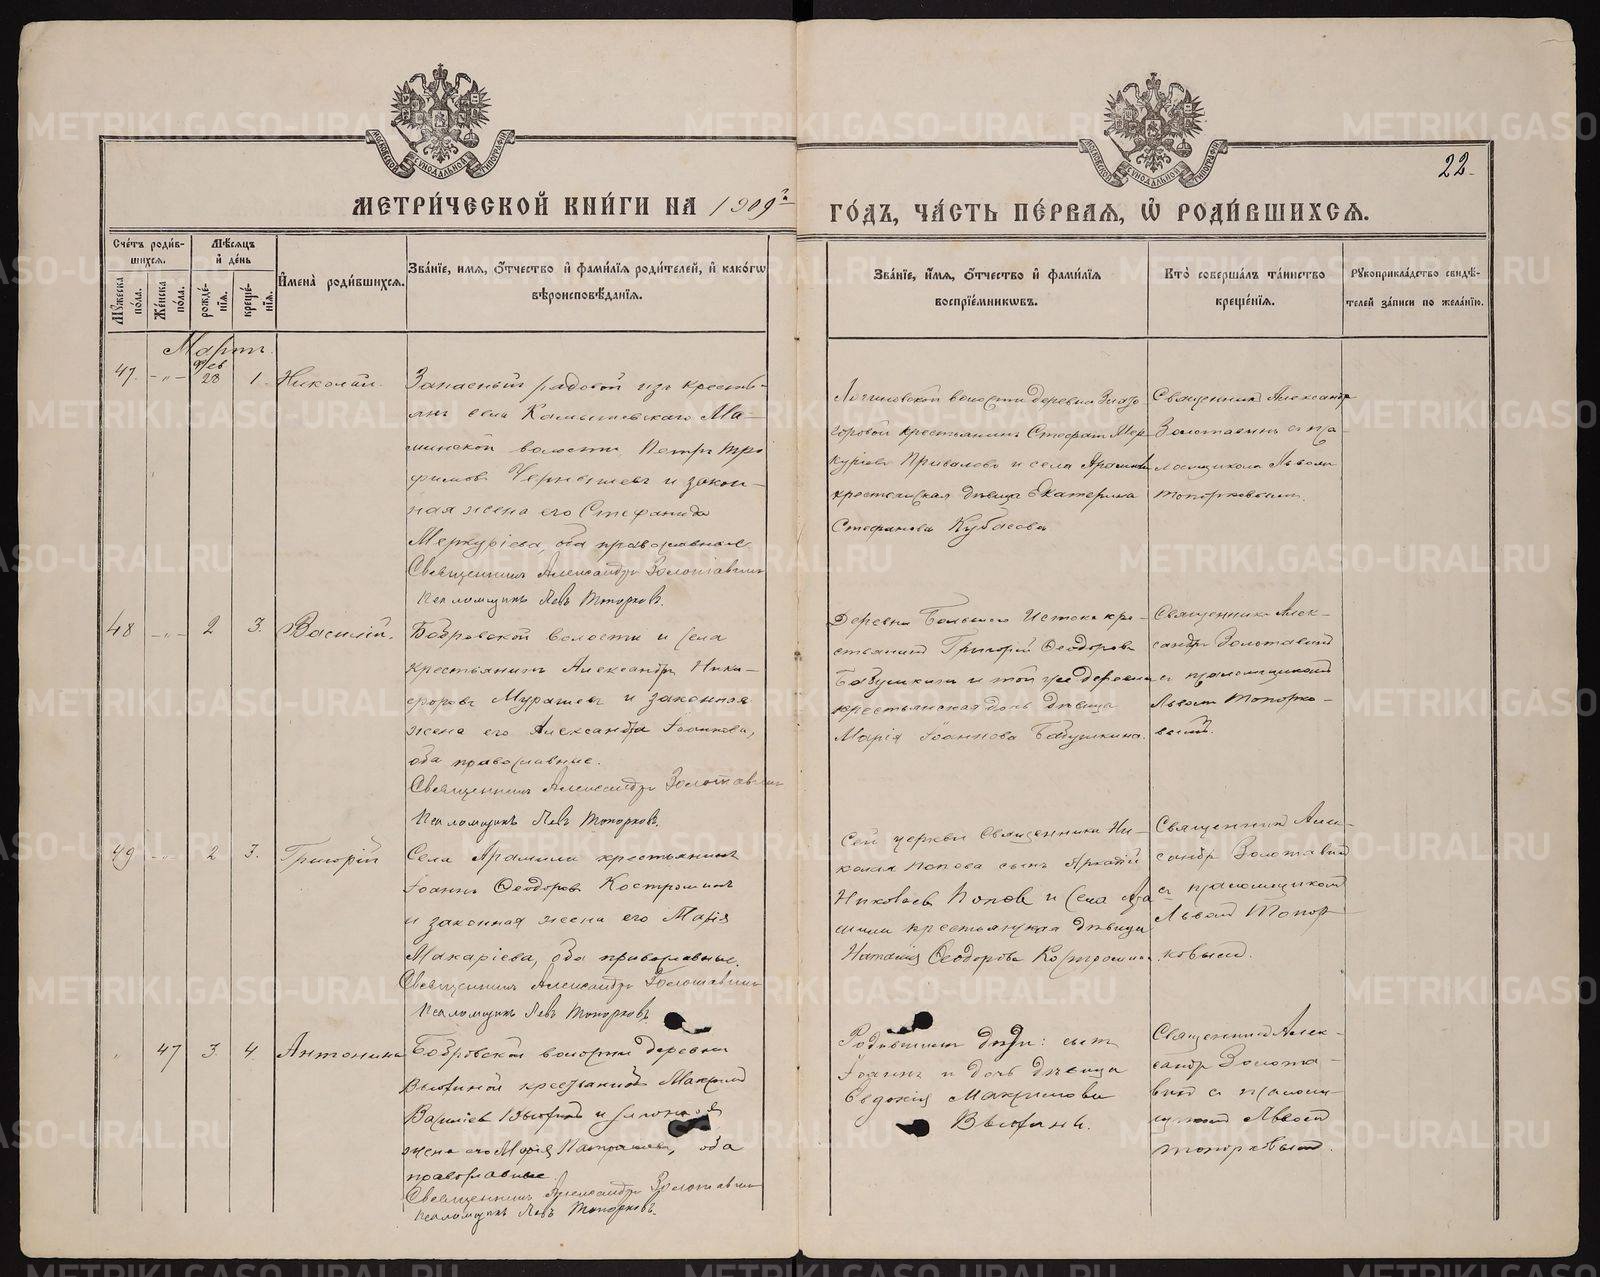 22.
МЕТРИ́ЧЕСКОЙ КНИ́ГИ НА 1909 ГО́ДЪ, ЧА́СТЬ ПЕ́РВАЯ, Ѿ РОДИ́ВШИХСЯ.
Сче́тъ роди́в-
шихся.
Мѣ́сяцъ
и де́нь
Мꙋ́жеска
по́ла.
Же́нска
по́ла.
рожде́-
нія.
креще́-
нія.
Имена̀ роди́вшихся.
Зва́ніе, имя, о́тчество и фами́лія роди́телей, и како́гѡ
вѣроисповѣ́данія.
Зва́ніе, и́мя, о́тчество и фами́лія
воспріе́мникѡвъ.
Кто̀ соверша́лъ та́инство
креще́нія.
Рꙋкоприкла́дство свидѣ́-
телей за́писи по жела́нію.
Мартъ
47. Фев 28 1. Николай.
Запасный рядовой изъ кресть-
янъ села
минской волости Петръ Тро
фимовъ Чернышевъ и закон-
ная жена его Стефанида
Меркуріева, оба православные
Священникъ Александръ Золотавинъ
Псаломщикъ Левъ Топорковъ.
волости деревни
крестьянинъ Стефанъ Мер
куріевъ Приваловъ и села Арамили
крестьянская дѣвица Екатерина
Стефанова Кубасова
Священникъ Александръ
Золотавинъ съ пса-
ломщикомъ Львомъ
Топорковымъ.
48 2 3. Василій.
Бобровской волости и села
крестьянинъ Александръ Ники-
форовъ Мурашевъ и законная
жена его Александра Іоаннова,
оба православные.
Священникъ Александръ Золотавинъ
Псаломщикъ Левъ Топорковъ.
Деревни Большого Истока кре-
стьянинъ Григорій Ѳеодоровъ
Бабушкинъ и той же деревни
крестьянская дочь дѣвица
Марія Іоаннова Бабушкина.
Священникъ Алек-
сандръ Золотавинъ
съ псаломщикомъ
Львомъ Топорко-
вымъ.
49 2 3. Григорій
Села Арамили крестьянинъ
Іоаннъ Ѳеодоровъ Костроминъ
и законная жена его Марія
Макаріева, оба православные.
Священникъ Александръ Золотавинъ
Псаломщикъ Левъ Топорковъ.
Сей церкви Священника Ни-
колая Попова сынъ Аркадій
Николаевъ Поповъ и села Ара
мили крестьянская дѣвица
Наталія Ѳеодорова Костромина.
Священникъ Алек-
сандръ Золотавинъ
съ псаломщикомъ
Львомъ Топор
ковымъ.
47 3. 4. Антонина
Бобровской волости деревни
крестьянинъ Максимъ
и законная
жена его Марія оба
православные.
Священникъ Александръ Золотавинъ
Псаломщикъ Левъ Топорковъ.
Родившихъ дѣти: сынъ
Іоаннъ и дочь дѣвица
Евдокія Максимовы
Священникъ Алек-
сандръ Золота-
винъ съ псалом-
щикомъ Львомъ
Топорковымъ.
METRIKI.GASO-URAL.RU